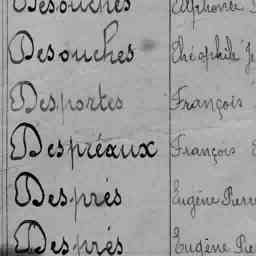 Desouches Alphonse
Desouches Théophile
Desportes François
Despréaux François
Després Eugène Pierre
Després Eugène